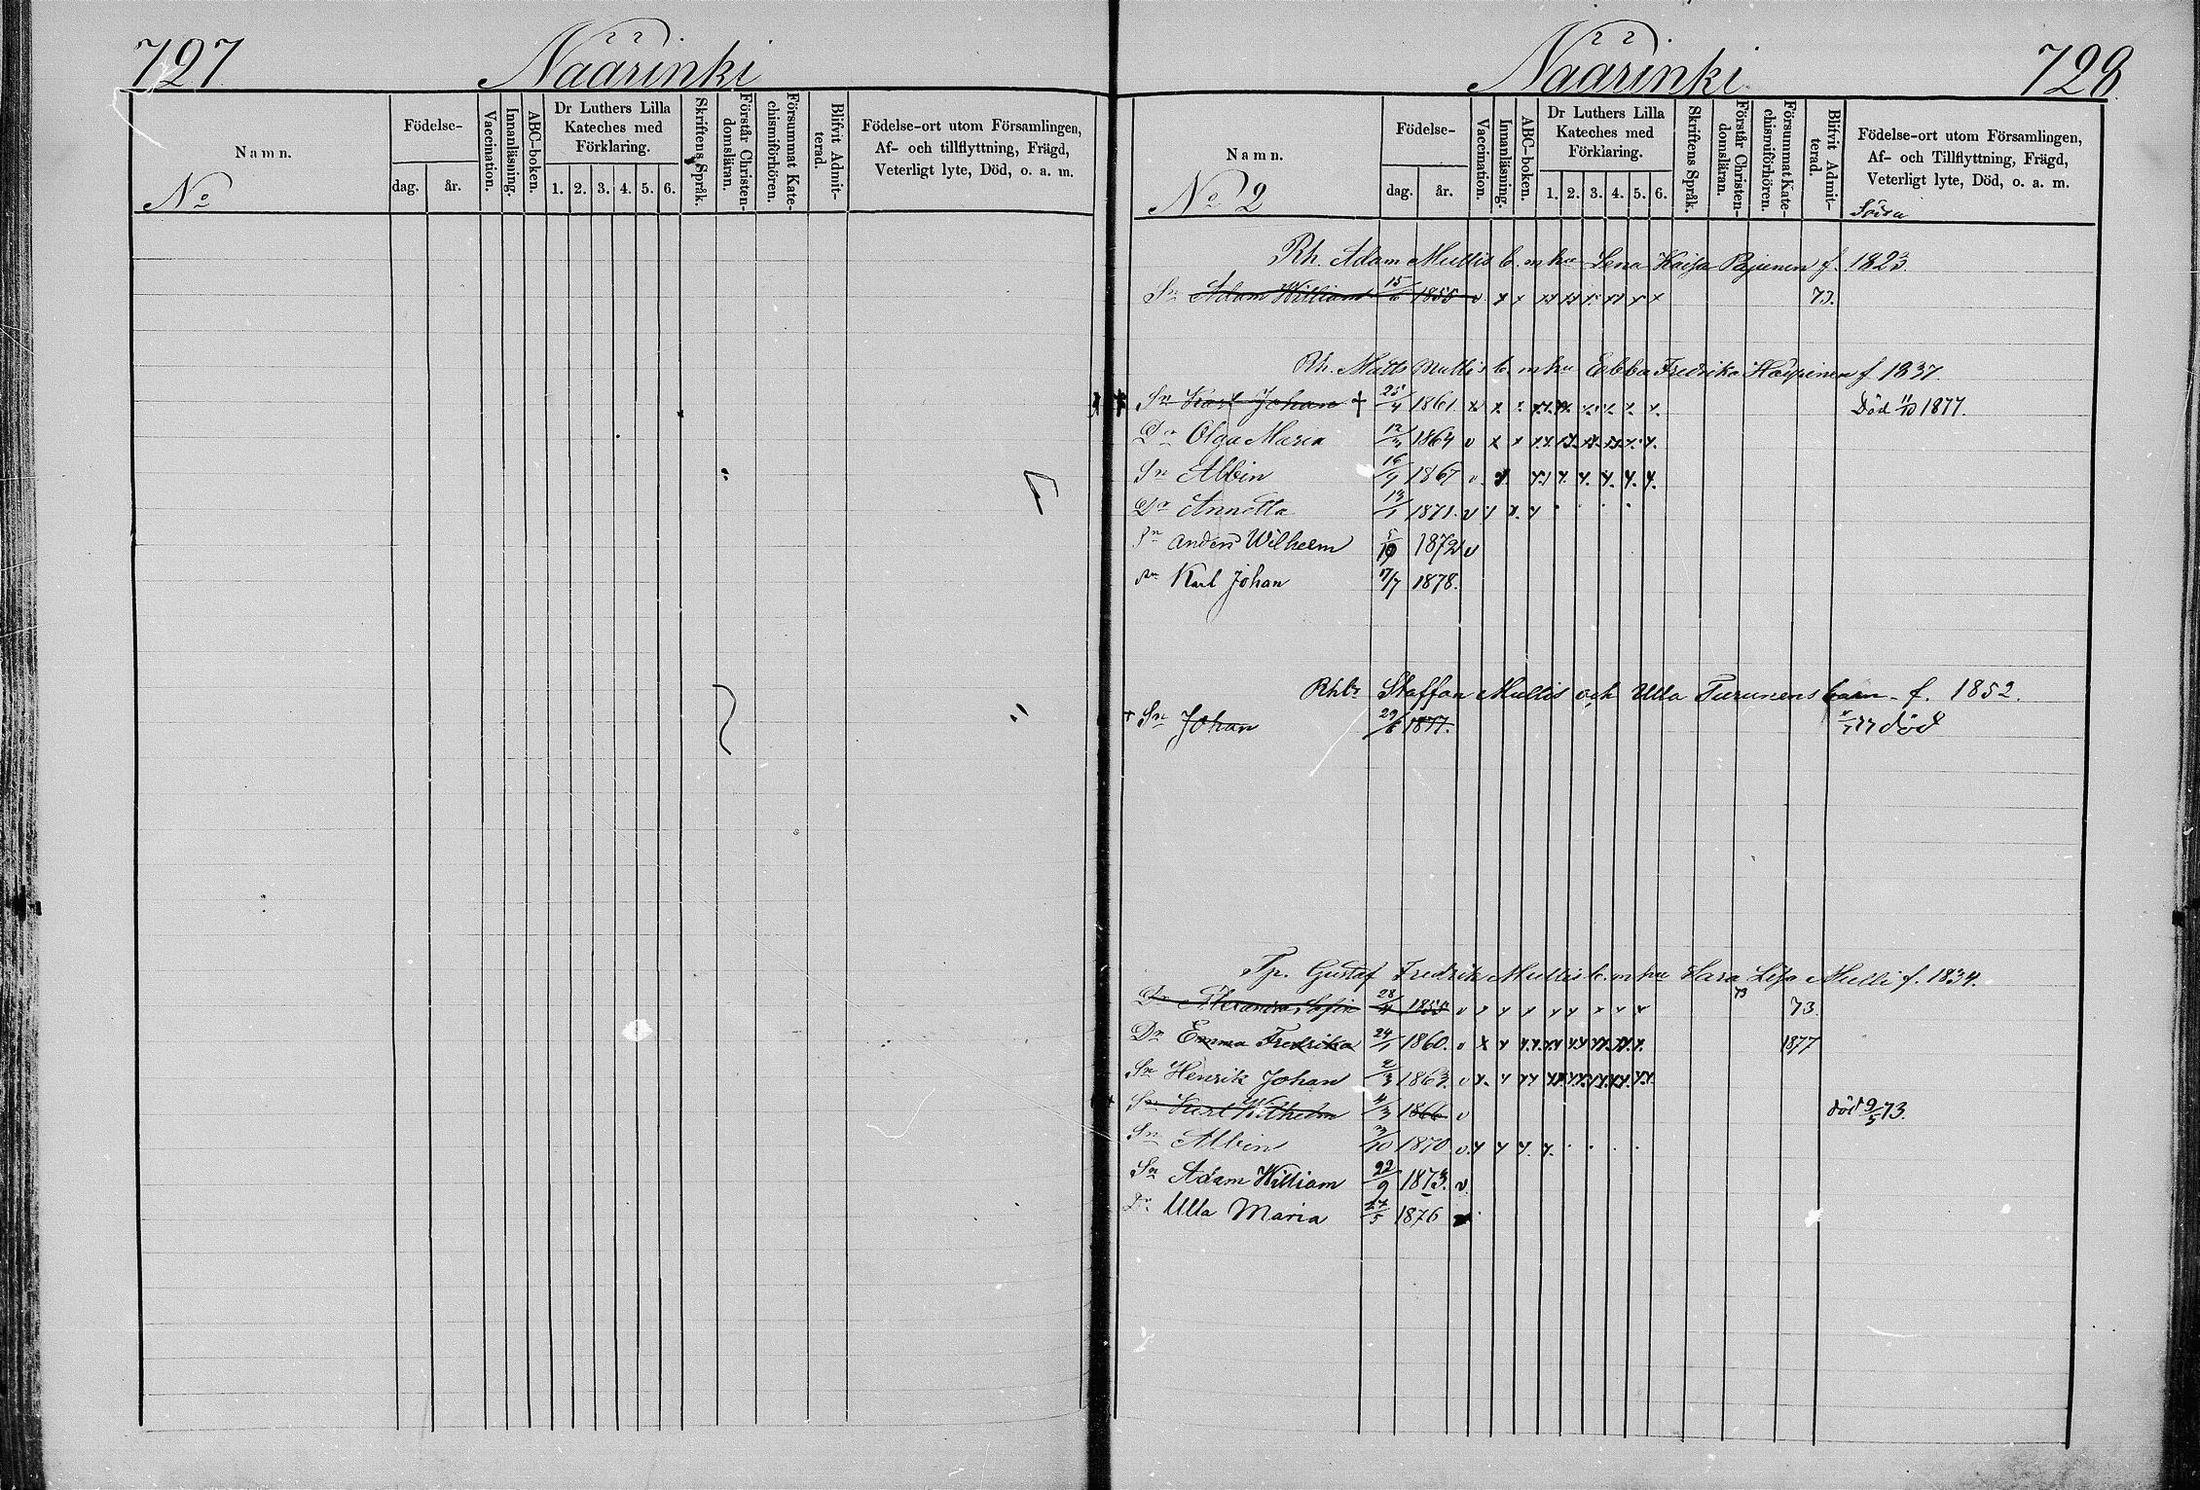 727 Näärinki
Namn.
Födelse-
dag. år.
Vaccination.
Innanläsning.
ABC-boken.
Dr Luthers Lilla
Kateches med
Förklaring.
1. 2. 3. 4. 5. 6.
Skriftens Språk.
Förstår Christen-
domsläran.
Försummat Kate-
chismiförhören.
Blifvit Admit-
terad.
Födelse-ort utom Församlingen,
Af- och tillflyttning, Frägd,
Veterligt lyte, Död, o. a. m.
No
Näärinki 728.
Namn.
Födelse-
dag. år.
Vaccination.
Innanläsning.
ABC-boken.
Dr Luthers Lilla
Kateches med
Förklaring.
1. 2. 3. 4. 5. 6.
Skriftens Språk.
Förstår Christen-
domsläran.
Försummat Kate-
chismiförhören.
Blifvit Admit-
terad.
Födelse-ort utom Församlingen,
Af- och Tillflyttning, Frägd,
Veterligt lyte, Död, o. a. m.
No 2
Rh. Adam Mullis b. m hu Lena Kaisa f. 1823.
Sn Adam William 15/6 1855 v x x xx xx x xx x x 73.
Rh. Matts Mullis b. m hu Ebba Fredrika f 1837.
Sn Karl Johan † 25/4 1861 Död 11/10 1877.
Dr Olga Maria 12/3 1864 v
Sn Albin 16/9 1867 v
Dr Annetta 13/1 1871. v
Sn Anders Wilhelm 5/10 1872 v
Sn Karl Johan 17/7 1878.
Staffan Mullis och Ulla Turunens barn f. 1852.
† Sn Johan 29/6 1877. 77 död
Tp. Gustaf Fredrik Mullis b. m hu Sara Lisa Mulli f. 1834.
73
Dr Alexandra Sofia 28/4 1855 v 73.
Dr Emma Fredrika 24/1 1860. v 1877
Sn Henrik Johan 2/3 1863. v
Sn Karl Wilhelm 4/3 1866 v död 9/5 73.
Sn Albin 3/10 1870 v
Sn Adam William 22/9 1873. v.
Dr Ulla Maria 27/5 1876 v